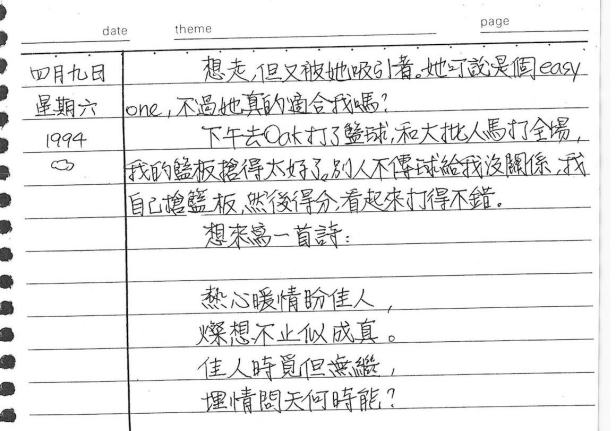 date theme page
四月九日 想走,但又被她吸引者。她可說是個easy
星期六 one,不過她真的適合我嗎?
1994 下午去Oak打了籃球,和大批人馬打全場,
我的籃板搶得太好了。別人不傳球給我沒關係,我
自己搶籃板,然後得分,看起來打得不錯。
想來寫一首詩:
熱心暖情盼佳人,
燦想不止似成真。
佳人時覓但無繼,
埋情問天何時能?